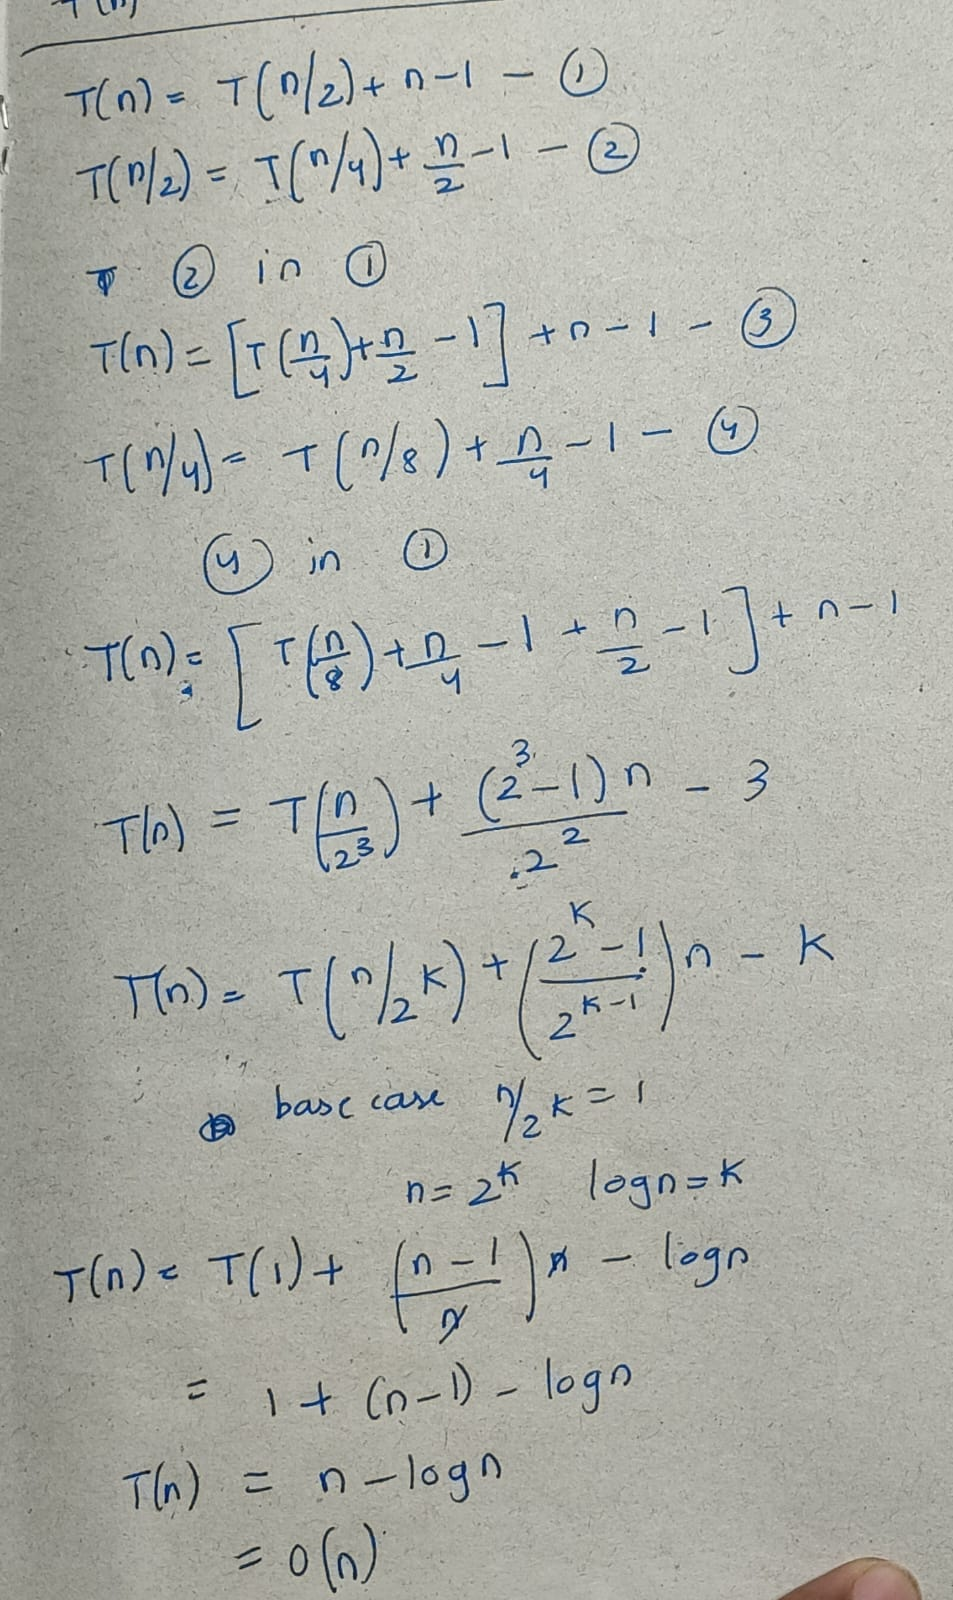 T(n) = T(n/2) + n-1 - ①
T(n/2) = T(n/4) + n/2 -1 - ②
② in ①
T(n) = [T(n/4) + n/2 - 1] + n - 1 - ③
T(n/4) = T(n/8) + n/4 - 1 - ④
④ in ①
T(n) = [T(n/8) + n/4 - 1 + n/2 - 1] + n - 1
T(n) = T(n/2³) + (2³-1)n/2² - 3
T(n) = T(n/2^K) + (2^K-1/2^K-1)n - K
base case n/2^K = 1
n = 2^K logn = K
T(n) = T(1) + (n-1/n)n - logn
= 1 + (n-1) - logn
T(n) = n - logn
= O(n)